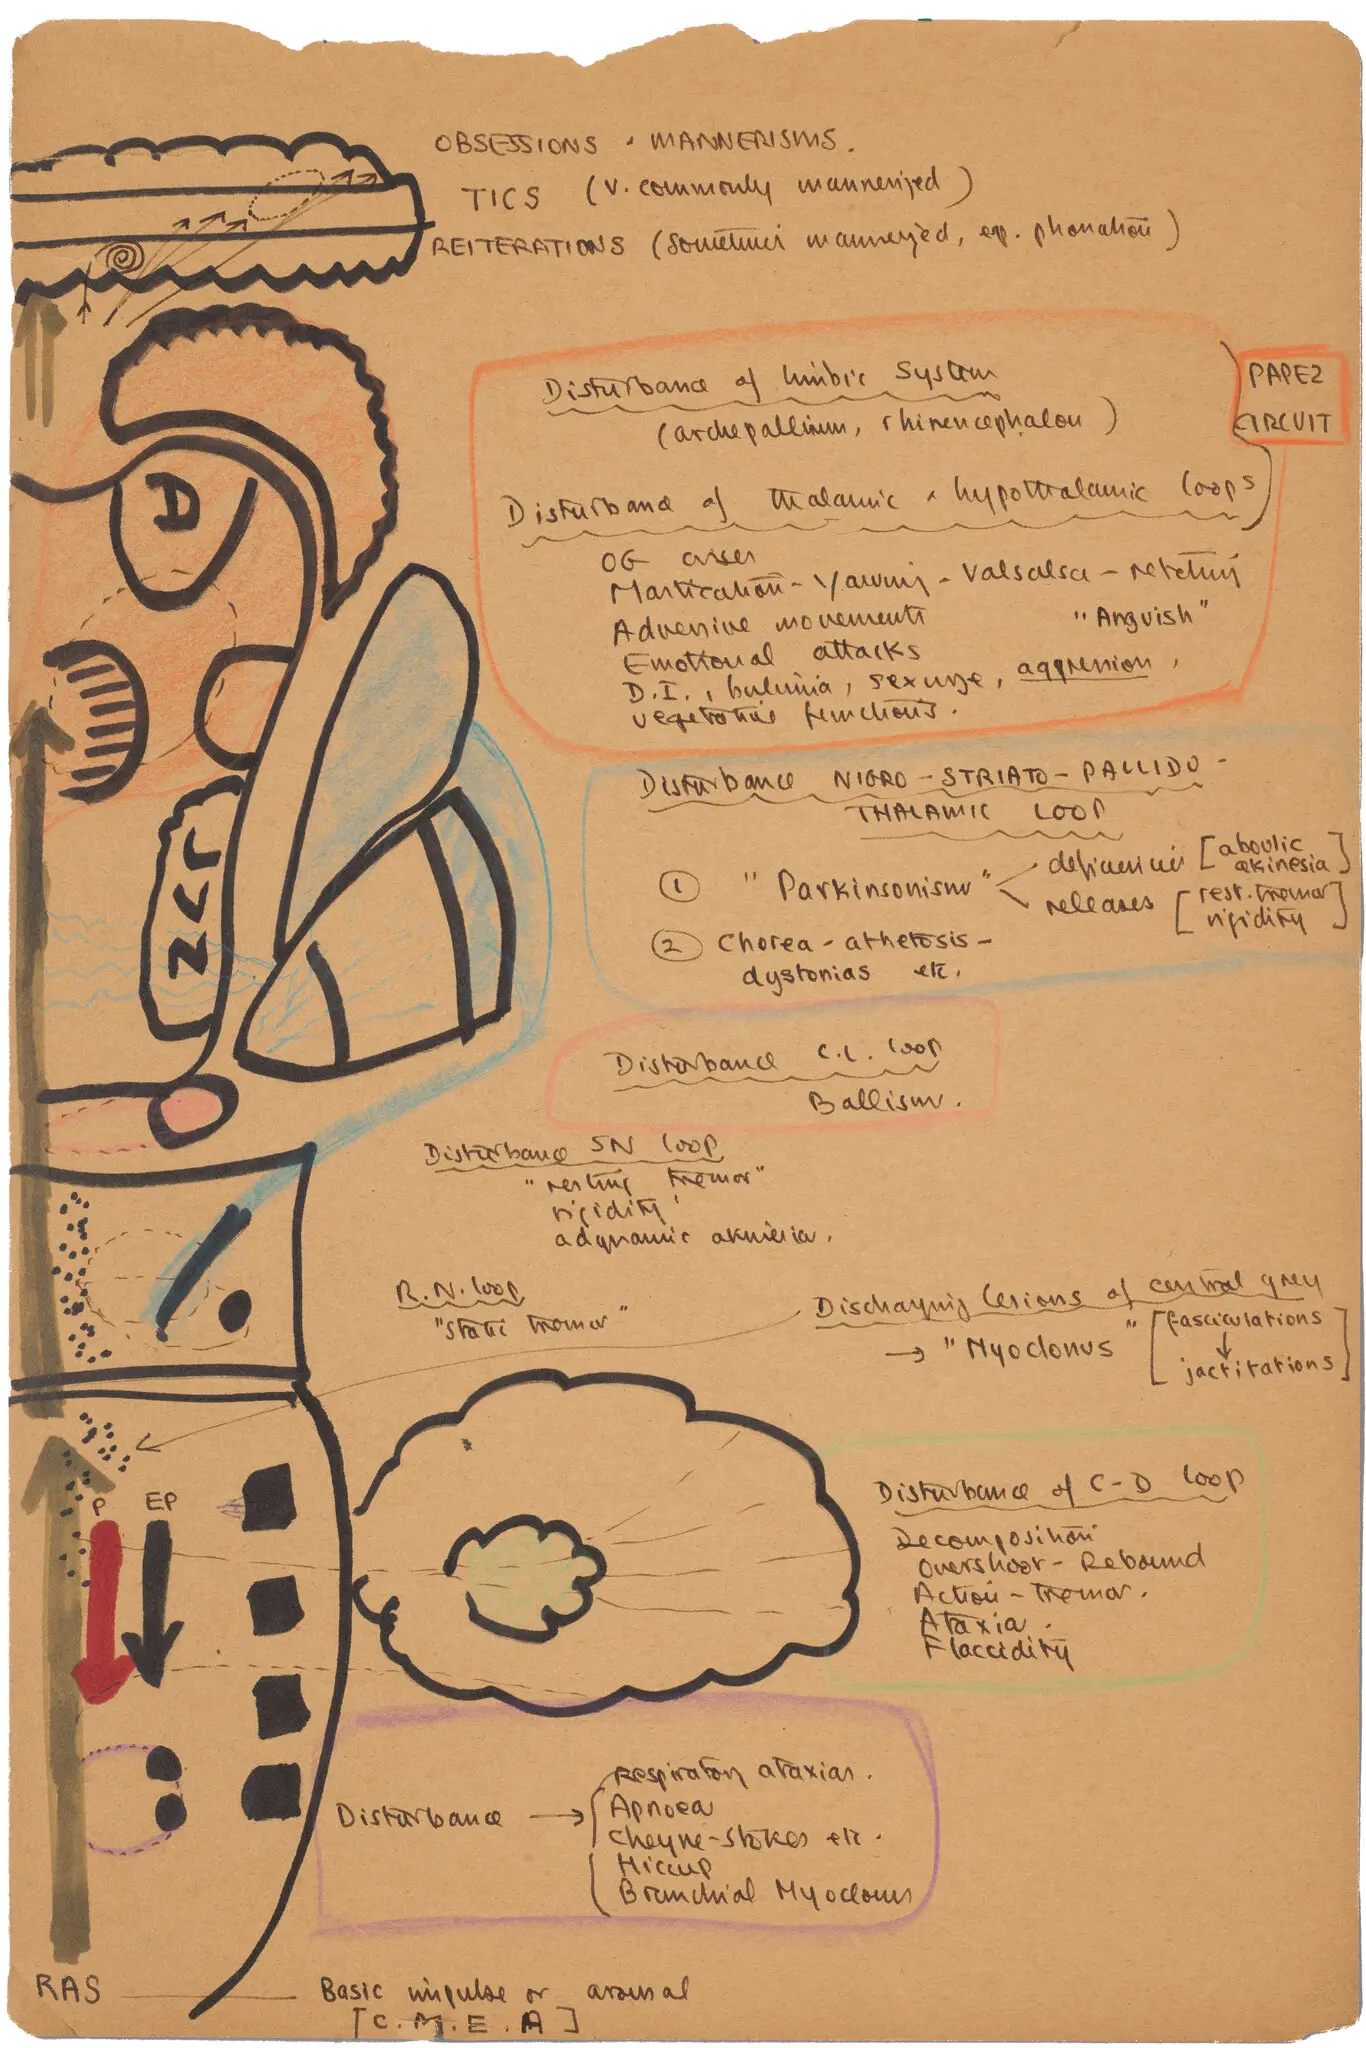 OBSESSIONS · MANNERISMS.
TICS (V. commonly mannerized)
REITERATIONS (sometimes mannerized, esp. phonation)
Disturbance of limbic system
(archepallium, rhinencephalon)
PAPEZ
CIRCUIT
Disturbance of thalamic & hypothalamic loops
OG crises
Mastication - Yawning - Valsalsa - retching
Adversive movements "Anguish"
Emotional attacks
D.I., bulimia, sexuage, aggression,
vegetative functions.
A
LVN
Disturbance NIGRO-STRIATO-PALLIDO-
THALAMIC LOOP
① "Parkinsonism" deficiencies [aboulic akinesia]
releases [rest. tremor rigidity]
② Chorea - athetosis -
dystonias etc.
Disturbance C.L. loop
Ballism.
Disturbance SN loop
"resting tremor"
rigidity
adynamic akinesia.
R.N. loop
"static tremor"
Discharging lesions of central grey
→ "Myoclonus" [fasciculations ↓ jactitations]
P EP
Disturbance of C-D loop
Decomposition
Overshoot - Rebound
Action-Tremor.
Ataxia.
Flaccidity
Disturbance →
Respiratory ataxias.
Apnoea
Cheyne-Stokes etc.
Hiccup
Branchial Myoclonus
RAS Basic impulse or arousal
[C.M.E.A]